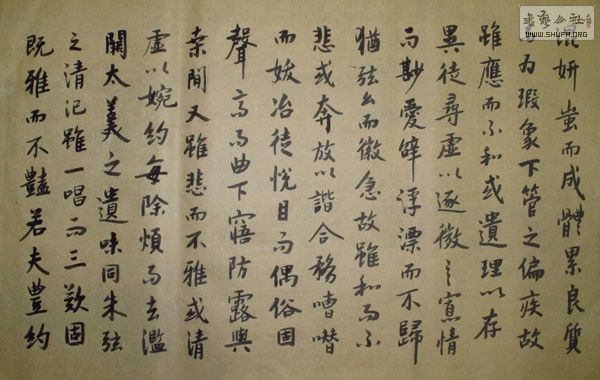 妍蚩而成體累良質
為瑕象下管之偏疾故
雖應而不和或遺理以存
異徒尋虛以逐微之寡情
而尠愛辭浮漂而不歸
猶弦么而徽急故雖和而不
悲或奔放以諧合務嘈囋
而妖冶徒悅目而偶俗固
聲高而曲下寤防露與
桑間又雖悲而不雅或清
虛以婉約每除煩而去濫
闕太羹之遺味同朱弦
之清汜雖一唱而三歎固
既雅而不豔若夫豐約
书艺公社
www.SHUFA.ORG